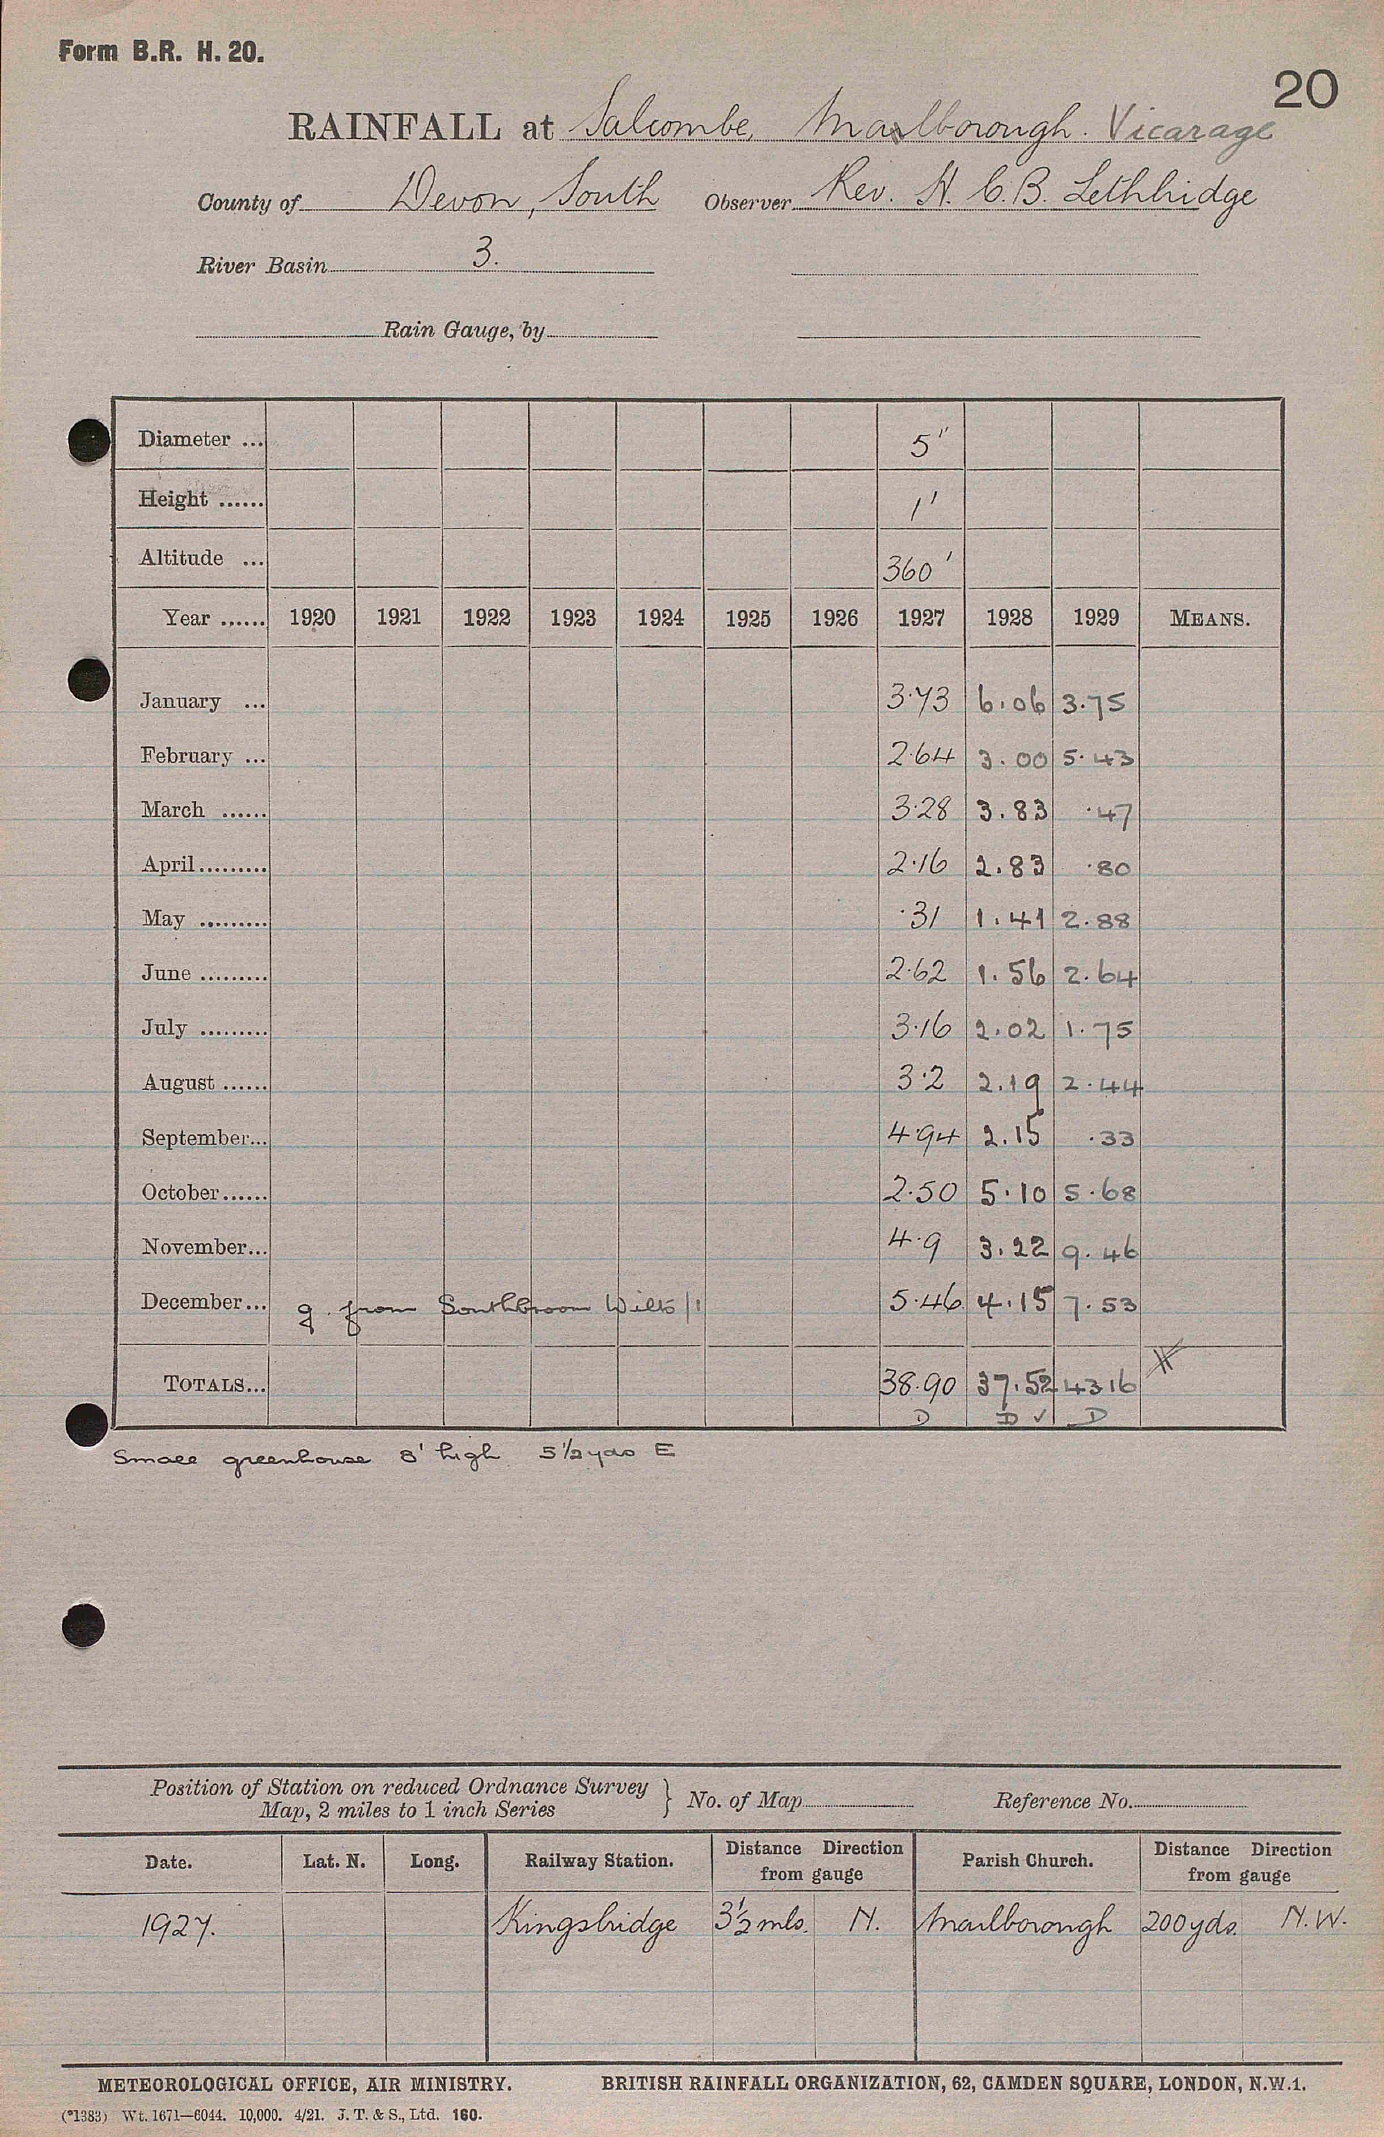 Form B.R. H. 20.
20
RAINFALL at Salcombe, Marlborough. Vicarage
County of Devon, South Observer Rev. H. C. B. Lethbridge
River Basin 3.
Rain Gauge, by
Diameter ... 5"
Height ...... 1'
Altitude ... 360'
Year ...... 1920 1921 1922 1923 1924 1925 1926 1927 1928 1929 MEANS.
January ... 3.73 6.06 3.75
February ... 2.64 3.00 5.43
March ...... 3.28 3.83 .47
April ......... 2.16 2.83 .80
May ......... .31 1.41 2.88
June ......... 2.62 1.56 2.64
July ......... 3.16 2.02 1.75
August ...... 3.2 2.19 2.44
September... 4.94 2.15 .33
October...... 2.50 5.10 5.68
November... 4.9 3.22 9.46
December... g. from Southbroom Wilts 5.46 4.15 7.53
TOTALS... 38.90 37.52 43.16
D D ✓ D
Small greenhouse 8' high 5½ yds E
Position of Station on reduced Ordnance Survey
Map, 2 miles to 1 inch Series } No. of Map Reference No.
Date. Lat. N. Long. Railway Station. Distance Direction from gauge Parish Church. Distance Direction from gauge
1927. Kingsbridge 3½ mls. N. Marlborough 200 yds. N.W.
METEOROLOGICAL OFFICE, AIR MINISTRY. BRITISH RAINFALL ORGANIZATION, 62, CAMDEN SQUARE, LONDON, N.W.1.
(*1383) Wt. 1671—6044. 10,000. 4/21. J. T. & S., Ltd. 160.